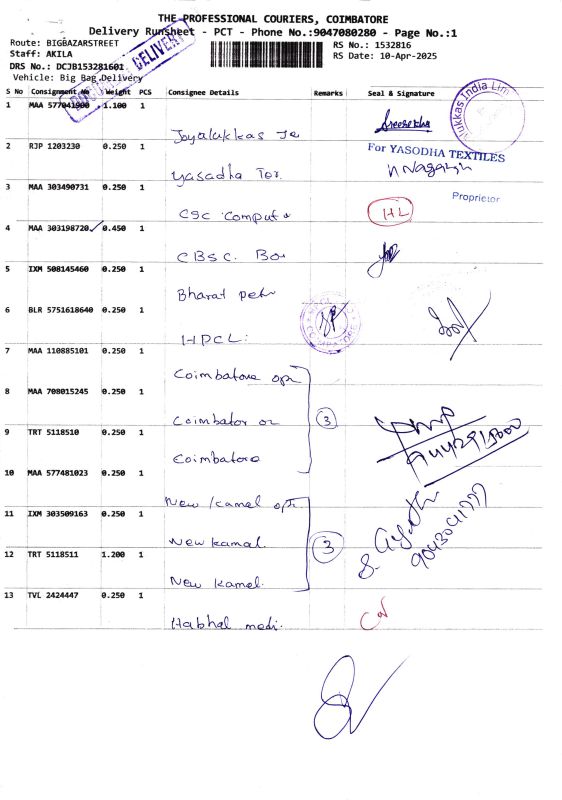 THE PROFESSIONAL COURIERS, COIMBATORE
Delivery Runsheet - PCT - Phone No.:9047080280 - Page No.:1
Route: BIGBAZARSTREET
RS No.: 1532816
Staff: AKILA
RS Date: 10-Apr-2025
DRS No.: DCJB153281601
Vehicle: Big Bag Delivery
DELIVERY
S No Consignment No Weight PCS Consignee Details Remarks Seal & Signature
1 MAA 577041900 1.100 PCS
Joyalukkas Je Sreerekha
ukkas India Lim
2 RJP 1203230 0.250 1
For YASODHA TEXTILES
Yasadha Tex.
Proprietor
3 MAA 303490731 0.250 1
CSC Compute HL
4 MAA 303198720 0.450 1
CBSC. Bo
5 IXM 508145460 0.250 1
Bharat petr
6 BLR 5751618640 0.250 1
HPCL.
7 MAA 110885101 0.250 1
Coimbatore opt
8 MAA 708015245 0.250 1
Coimbator o 3
9 TRT 5118510 0.250 1
Coimbatore
10 MAA 577481023 0.250 1
New Kamel opt
11 IXM 303509163 0.250 1
New Kamal. 3
9043041777
12 TRT 5118511 1.200 1
New Kamel.
13 TVL 2424447 0.250 1
Habhal medi.